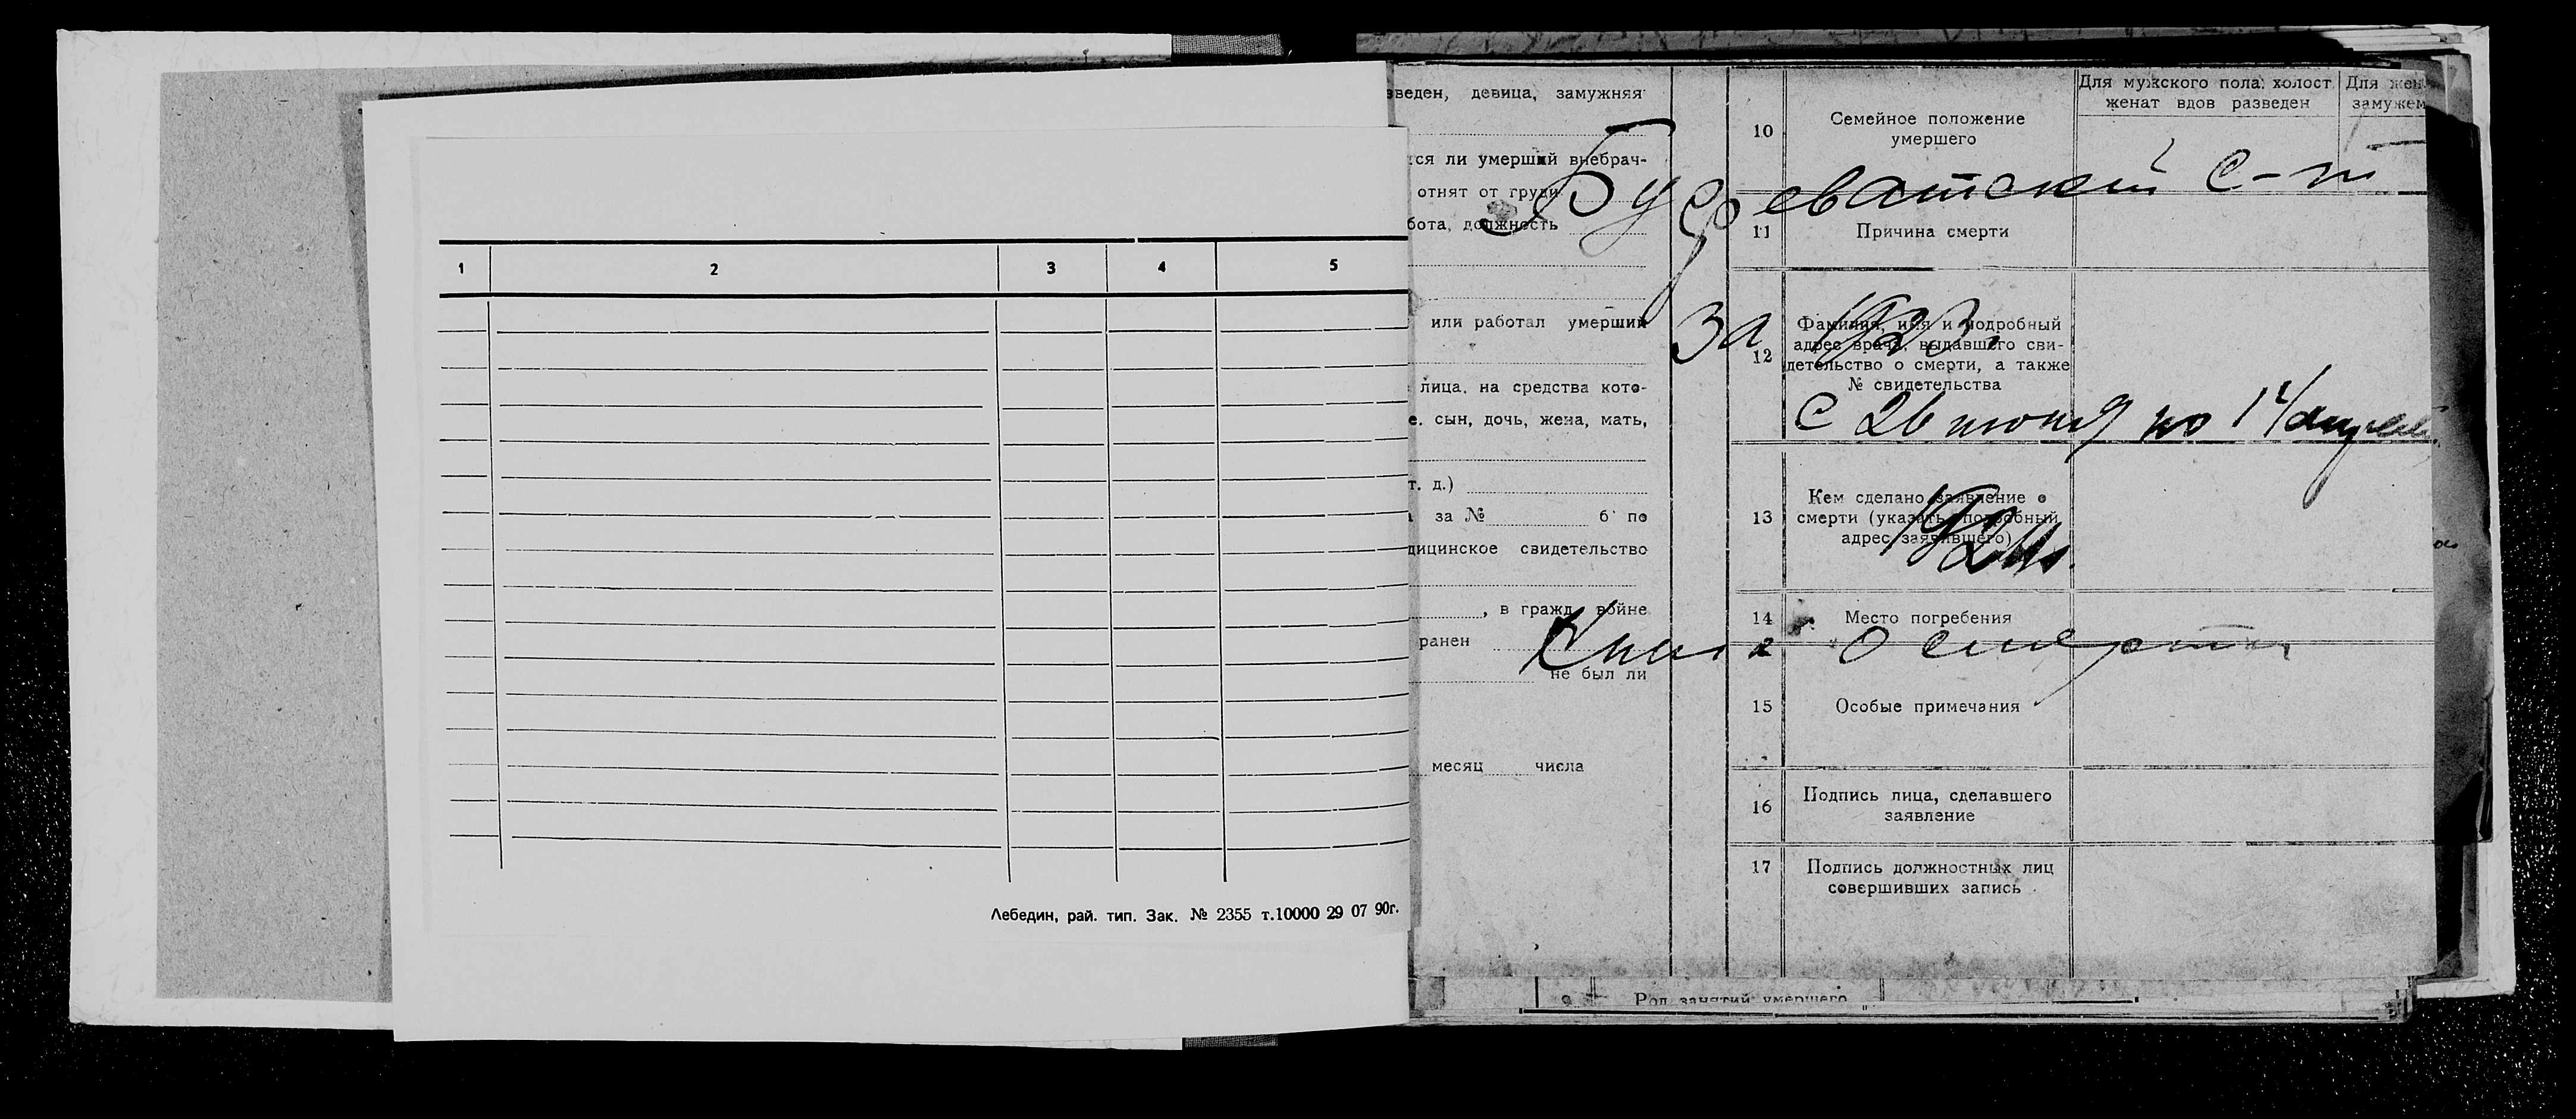 1 2 3 4 5
Лебедин, рай. тип. Зак. № 2355 т.10000 29 07 90г.
зведен, девица, замужняя
тся ли умерший внебрач-
отнят от груди
бота, должность
или работал умерший
лица, на средства кото-
е. сын, дочь, жена, мать,
т. д.)
за № б по
дицинское свидетельство
, в гражд. войне
ранен
не был ли
месяц числа
10 Семейное положение
умершего
Для мужского пола: холост
женат вдов разведен
Для жен
замужем
11 Причина смерти
12 Фамилия, имя и подробный
адрес врача, выдавшего сви-
детельство о смерти, а также
№ свидетельства
13 Кем сделано заявление о
смерти (указать подробный
адрес заявившего)
14 Место погребения
15 Особые примечания
16 Подпись лица, сделавшего
заявление
17 Подпись должностных лиц
совершивших запись
За 1923
С 26 июня по 14 апреля
1924
о смерти
9 Род занятий умершего